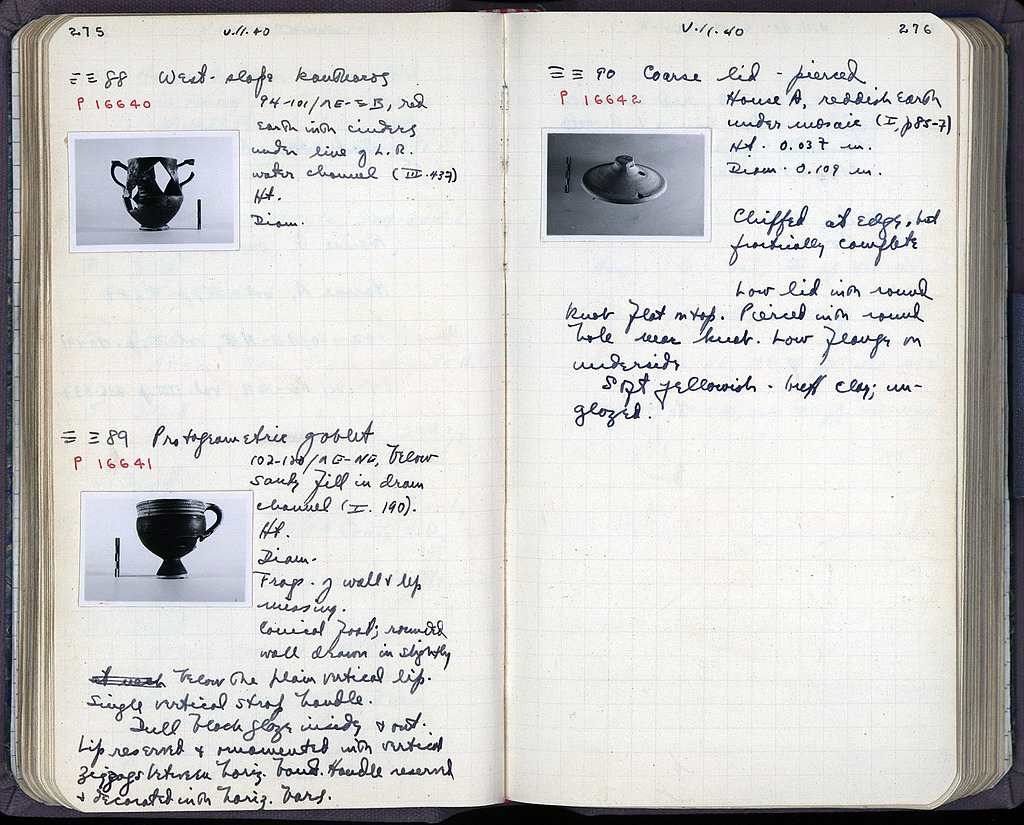 275
V.11.40
ΞΞ 88 West-slope kantharos
P 16640
94-101/ΛΕ-ΞΒ, red
earth with cinders
under line of L.R.
water channel (III.437)
Ht.
Diam.
ΞΞ 89 Protogeometric goblet
P 16641
102-120/ΛΕ-ΝΕ, below
sandy fill in drain
channel (I. 190).
Ht.
Diam.
Frags. of wall & lip
missing.
Conical foot; rounded
wall drawn in slightly
below the plain vertical lip.
Single vertical strap handle.
Dull black glaze inside & out.
Lip reserved & ornamented with vertical
zigzags between horiz. band. Handle reserved
& decorated with horiz. bars.
V.11.40
276
ΞΞ 90 Coarse lid - pierced
P 16642
House A, reddish earth
under mosaic (I, p85-7)
Ht. 0.037 m.
Diam. 0.109 m.
Chipped at edge, but
practically complete
Low lid with round
knob flat on top. Pierced with round
hole near knob. Low flange on
underside
Soft yellowish-buff clay; un-
glazed.